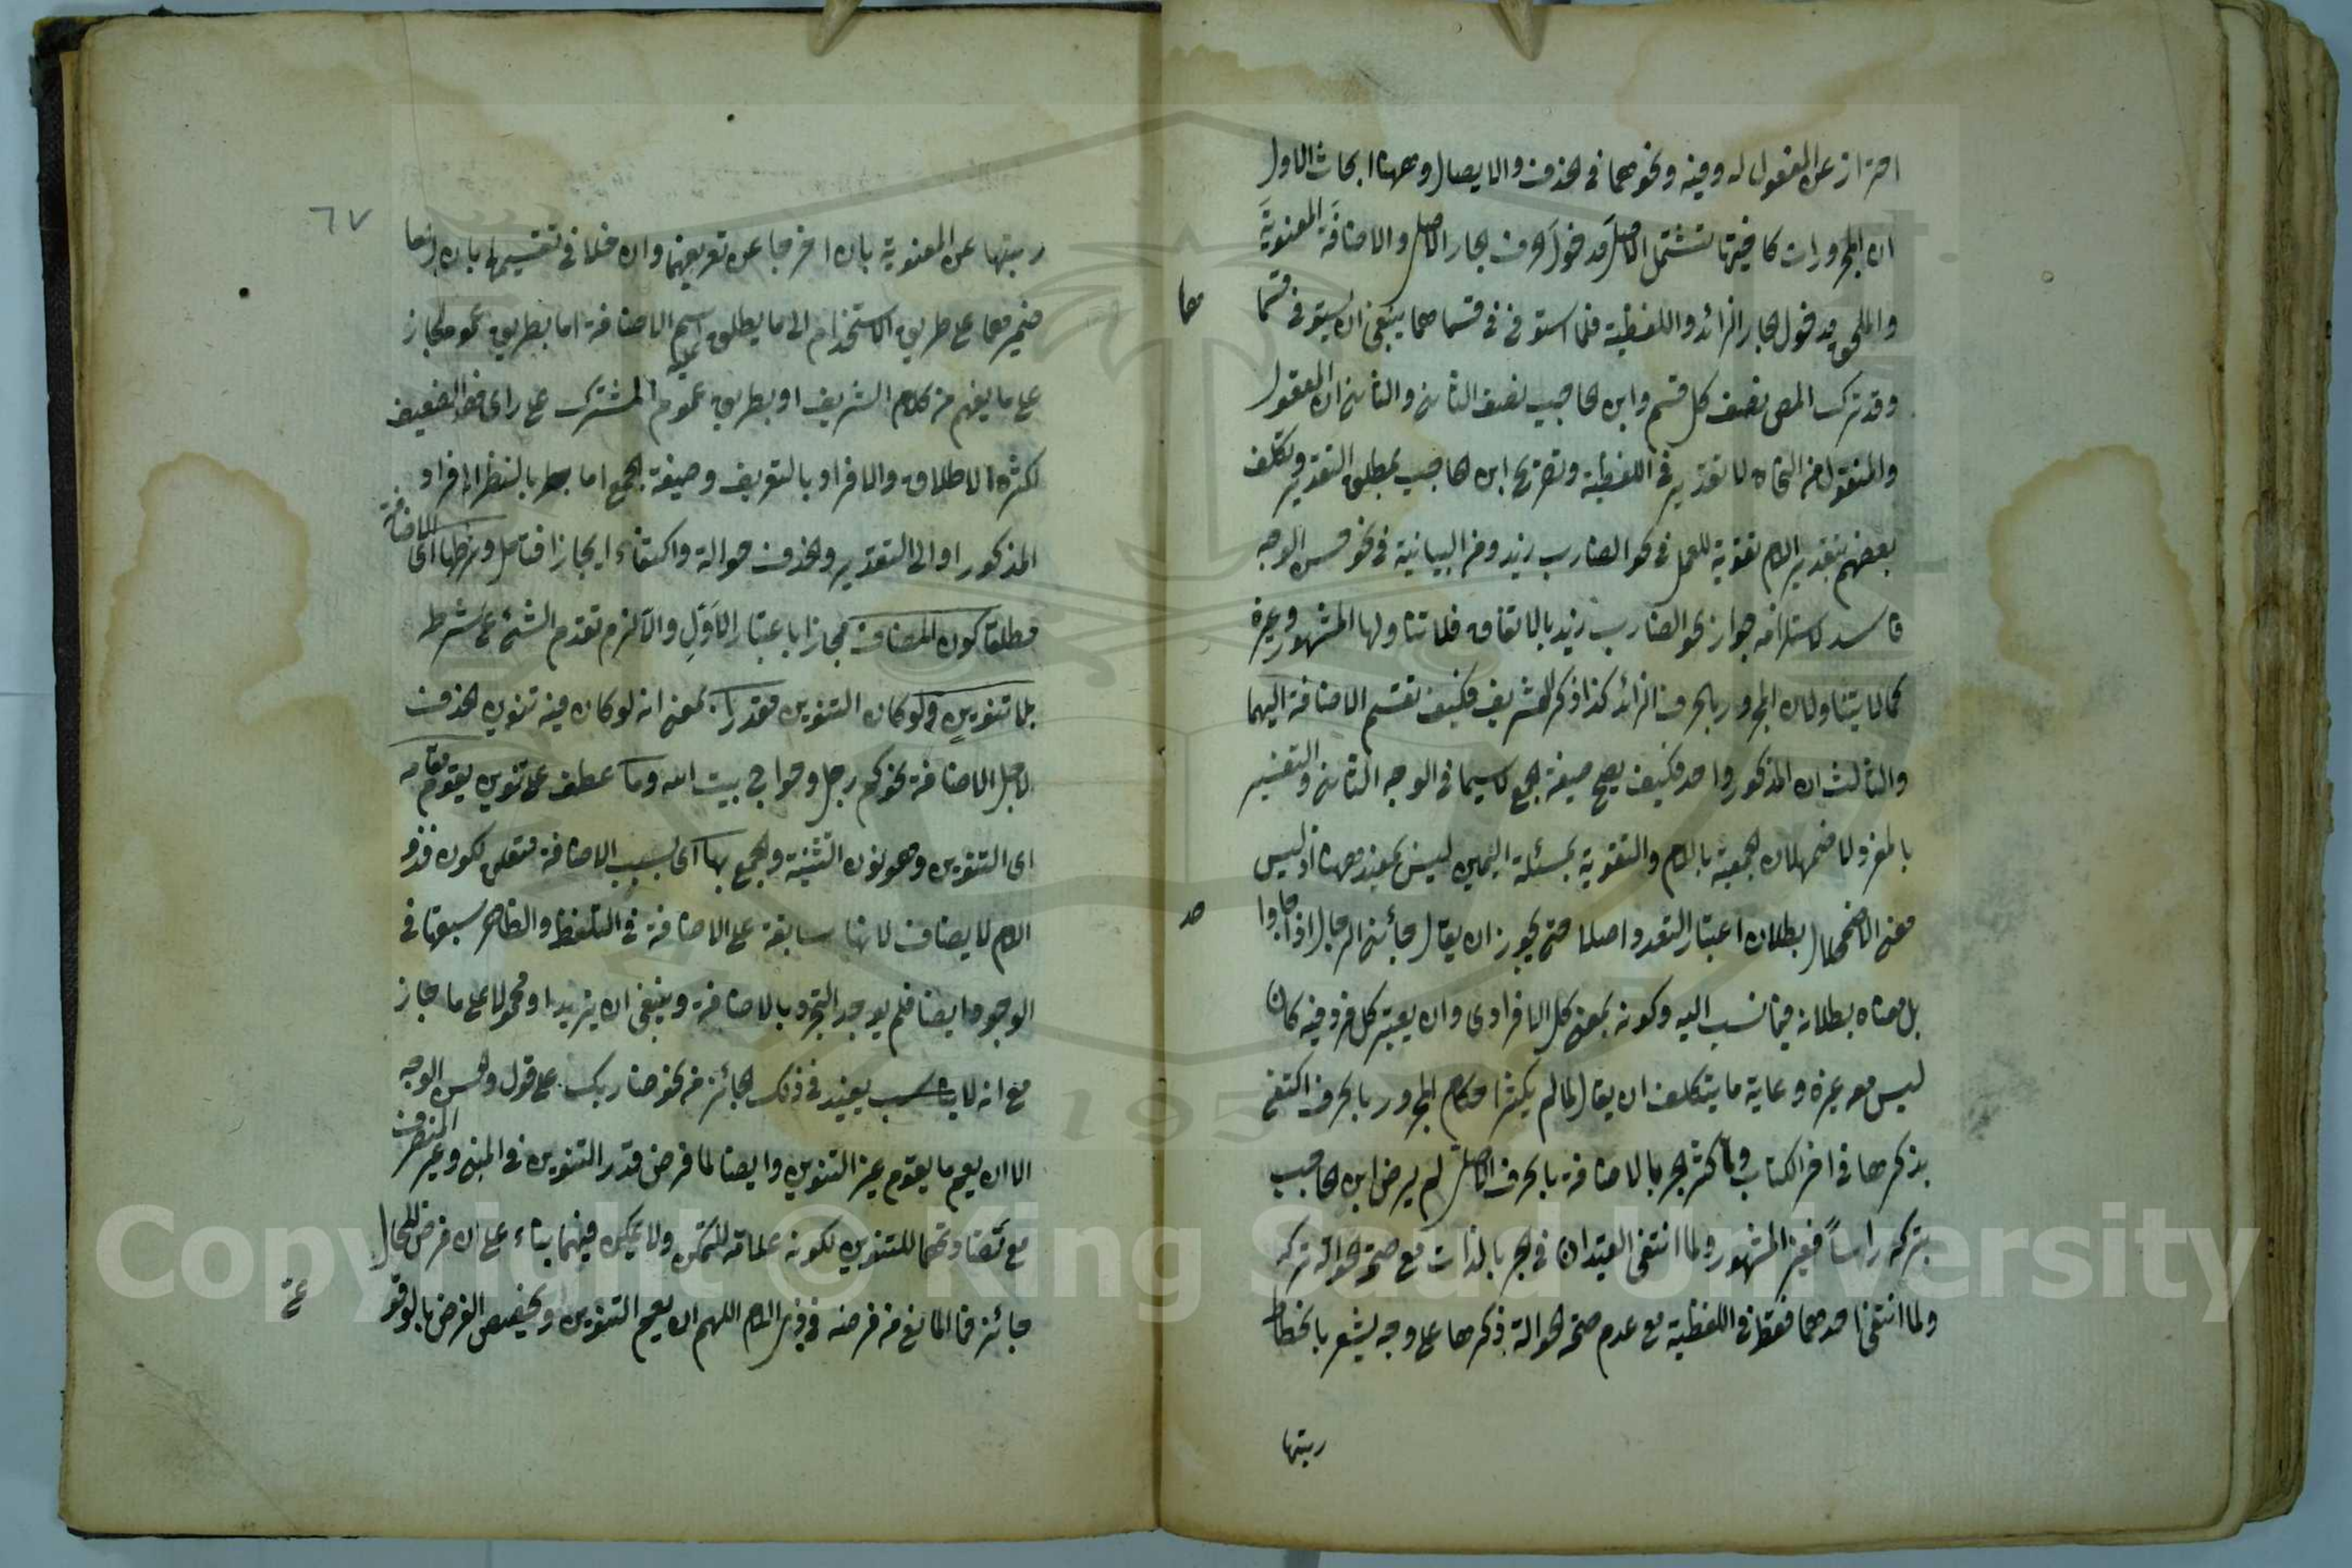 احتراز عن المفعول له وفيه ونحوهما في الحذف والايصال وههنا ابحاث الاول
ان المجرورات كما فيتها تشتمل الاصل مدخول الحرف الجار الاصل والاضافة المعنوية
والملحق مدخول الجار الزائد واللفظية فلما استوفى في قسماهما ينبغي ان يستوفى قسما
هما
وقد ترك المص نصف كل قسم وابن الحاجب نصف الثاني والثاني ان المعقول
والمنقول من النحاة لا تقدير في اللفظية وتصريح ابن الحاجب بمطلق التقدير وتكلف
بعضهم بتقدير اللام تقوية للعمل في نحو الضارب زيد ومن البيانية في نحو حسن الوجه
فاسد لاستلزامه جواز نحو الضارب زيد بالاتفاق فلا تناولها المشهور وغيره
كما لا يتناولان المجرور بالحرف الزائد كذا ذكر الشريف فكيف تقسم الاضافة اليهما
والثالث ان المذكور واحد فكيف يصح صيغة الجمع لاسيما في الوجه الثاني والتفسير
بالمفرد لاضمحلال الجمعية باللام والتقوية بمسئلة اليمين ليس بمفيد ههنا اذ ليس
معنى الاضمحلال بطلان اعتبار التعدد اصلا حتى يجوز ان يقال جائني الرجال اذا جاء
حد
بل معناه بطلانه فيما نسب اليه وكونه بمعنى كل الافرادى وان يعتبر كل فرد فيه كان
ليس معه غيره وغاية ما يتكلف ان يقال لما لم يكثر احكام المجرور بالحرف اكتفى
بذكرها في اخر الكتاب ولما كثر الجر بالاضافة بالحرف الاصل لم يرض ابن الحاجب
بتركه راساً فغير المشهور ولما انتفى القيدان في الجر بالذات مع صحة الحوالة تركه
ولما انتفى احدهما فقط في اللفظية مع عدم صحة الحوالة ذكرها على وجه يشعر بانحطاط
ربتها
٦٧
ربتها عن المعنوية بان اخرجا عن تعريفهما وادخلا في تقسيمها بان ارجعا
ضميرهما على طريق الاستخدام الى ما يطلق عليه اسم الاضافة اما بطريق عموم المجاز
على ما يفهم من كلام الشريف او بطريق عموم المشترك على راى الضعيف
لكثرة الاطلاق والافراد بالتعريف وصيغة الجمع اما بالنظر الى افراد
المذكور او الى التقدير والحذف حوالة واكتفاء ايجازا فتامل وشرطها اى الاضافة
مطلقا كون المضاف مجازا باعتبار الاول والا لزم تقدم الشئ على شرط
بلا تنوين ولو كان التنوين مقدرا بمعنى انه لو كان فيه تنوين لحذف
لاجل الاضافة نحو كم رجل وحواج بيت الله وما عطف على تنوين يقوم مقامه
اى التنوين وهو نون التثنية والجمع بها اى بسبب الاضافة متعلق بكون فذو
اللام لا يضاف لانها سابقة على الاضافة في التلفظ والظاهر سبقها في
الوجود ايضا فلم يوجد التجرد بالاضافة وينبغي ان يزيد او محمولا على ما جاز
مع انه لا يناسب يفيد في ذلك الجائز من نحو ضاربك على قول والحسن الوجه
الا ان يعم ما يقوم غير التنوين وايضا لما فرض قدر التنوين في المبنى وغير المنصرف
مع تضادهما للتنوين لكونه علامة للتمكن ولا تمكن فيهما بناء على ان فرض المحال
جائز فما المانع من فرضه في ذى اللام اللهم ان يعم التنوين وتخصيص الفرض بالوقو
ع